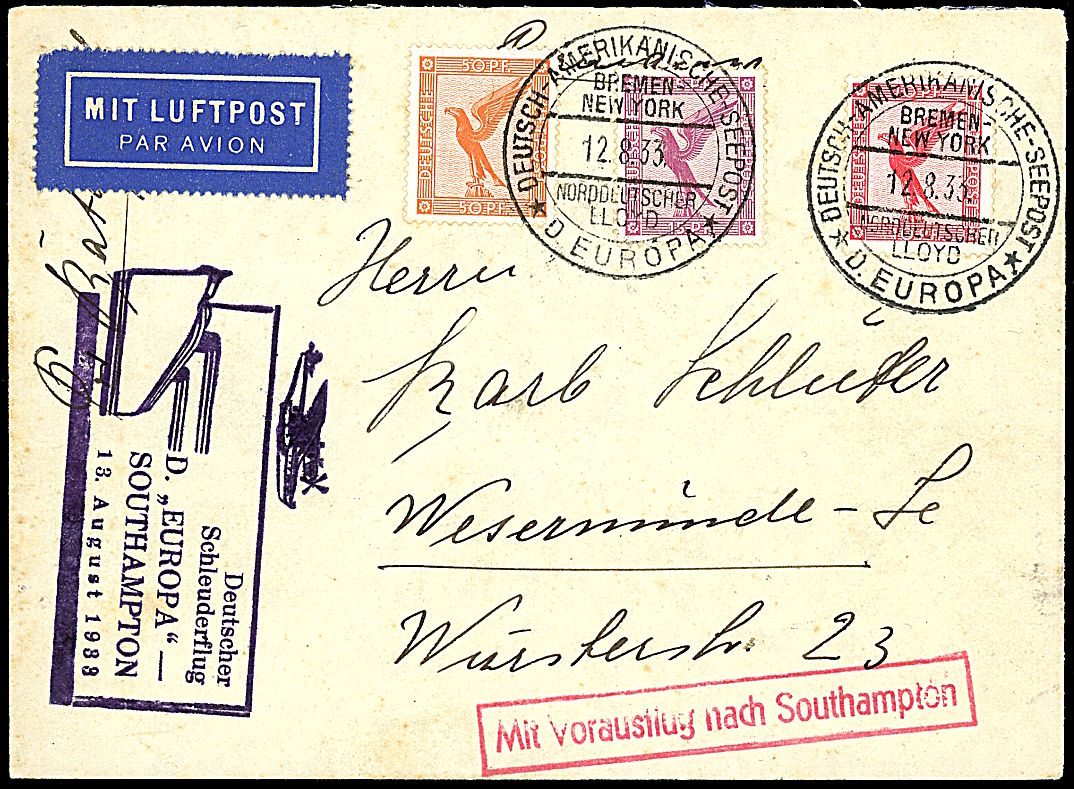 MIT LUFTPOST
PAR AVION
50 PF.
DEUTSCHE
50 PF.
15 PF.
DEUTSCH-AMERIKANISCHE-SEEPOST
BREMEN-
NEW YORK
12.8.33.
NORDDEUTSCHER
LLOYD
★ D. EUROPA ★
DEUTSCH-AMERIKANISCHE-SEEPOST
BREMEN-
NEW YORK
12.8.33.
NORDDEUTSCHER
LLOYD
★ D. EUROPA ★
Herrn
Karl Schlüter
Wesermünde - Le
Wursterstr. 23
Deutscher
Schleuderflug
D. „EUROPA“ —
SOUTHAMPTON
13. August 1933
Mit Vorausflug nach Southampton